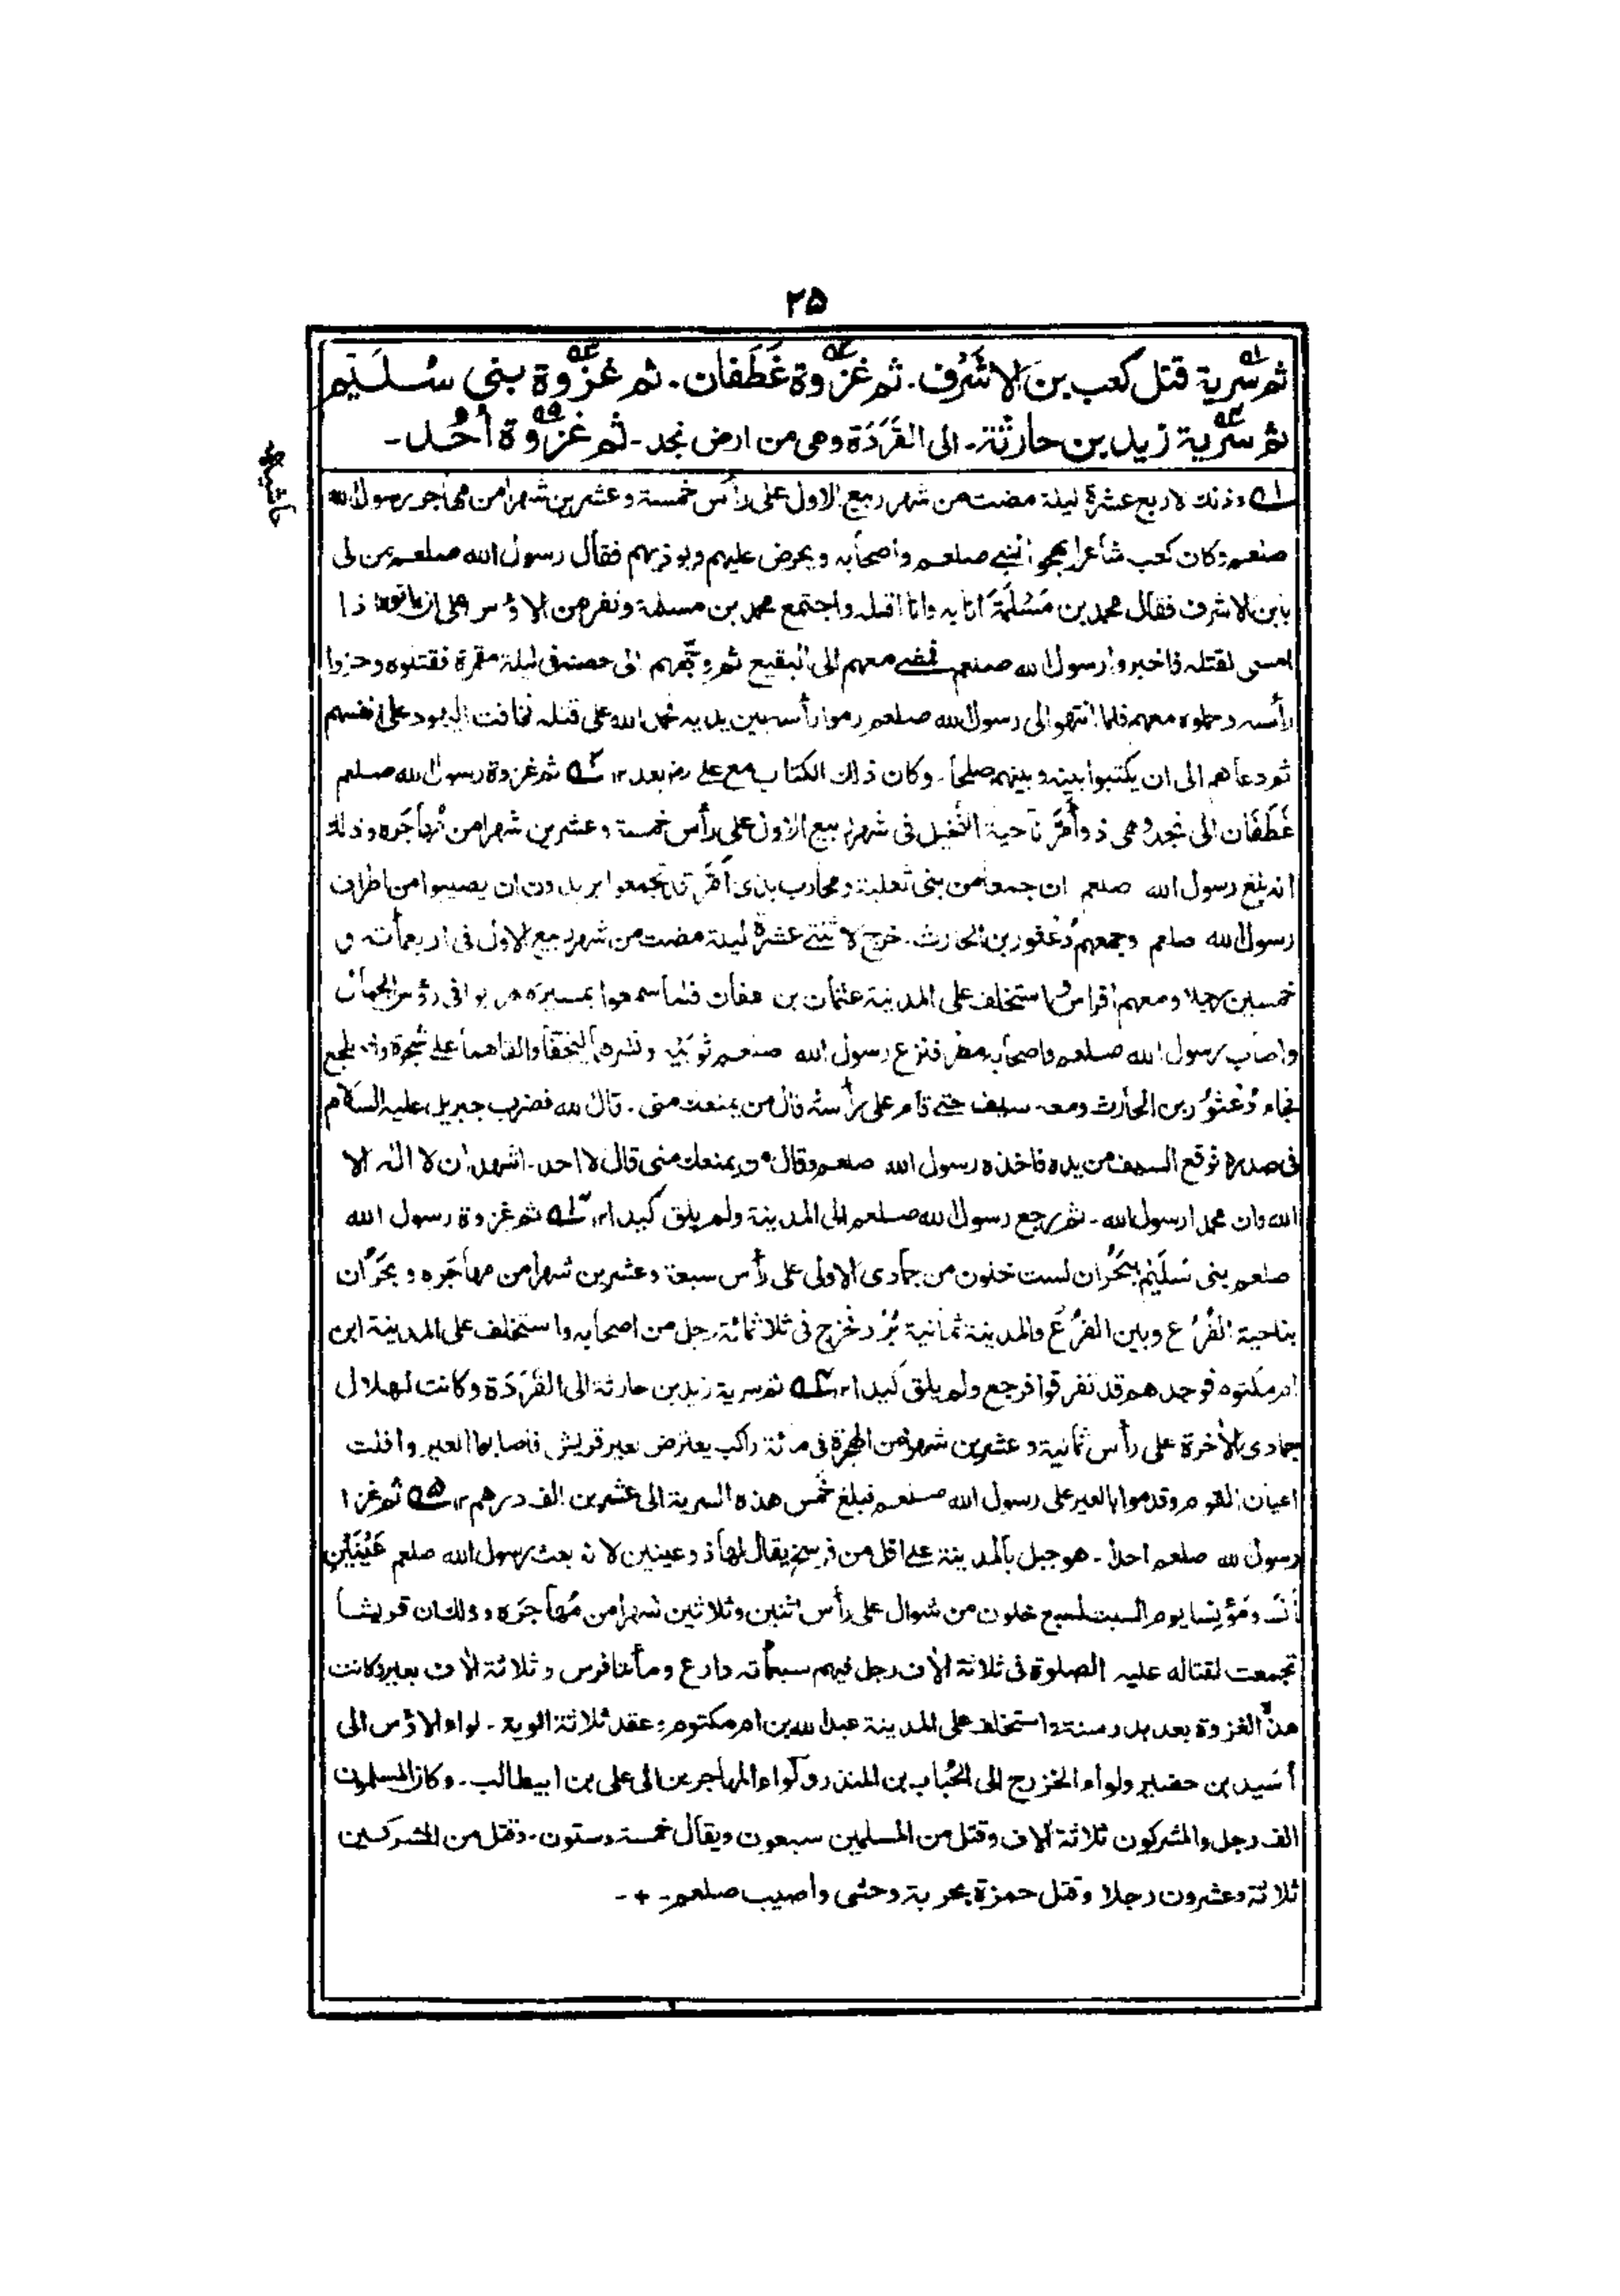 ۲۵
ثم سرية قتل كعب بن الاشرف۔ ثم غزوة غَطَفان۔ ثم غزوة بنى سُلَيْم
ثم سرية زيد بن حارثة۔ الى القَرَدَة وهى من ارض نجد۔ ثم غزوة أُحُد۔
حاشية
۱ وذلك لاربع عشرة ليلة مضت من شهر ربيع الاول على رأس خمسة وعشرين شهرا من مهاجر رسول الله
صلعم وكان كعب شاعرا يهجو النبى صلعم واصحابه ويحرض عليهم ويوذيهم فقال رسول الله صلعم من لى
بابن الاشرف فقال محمد بن مَسْلَمَةَ انا به وانا اقتله واجتمع محمد بن مسلمة ونفر من الاؤس على ان ياتوه اذا
امسى لقتله فاخبروا رسول الله صلعم فمضے معهم الى البقيع ثم وجّههم الى حصنه فى ليلة مقمرة فقتلوه وحزوا
رأسه وحملوه معهم فلما انتهوا الى رسول الله صلعم رموا رأسه بين يديه فحمد الله على قتله فخافت اليهود على انفسهم
ثم دعاهم الى ان يكتبوا بينه وبينهم صلحا۔ وكان ذلك الكتاب مع على رض بعد ۱۲ ۲ ثم غزوة رسول الله صلعم
غَطَفَان الى نجد وهى ذو أَمَرَّ ناحية النخيل فى شهر ربيع الاول على رأس خمسة وعشرين شهرا من مُهاجَره وذلك
انه بلغ رسول الله صلعم ان جمعا من بنى ثعلبة ومحارب بذى اَمَرَّ قد تجمعوا يريدون ان يصيبوا من اطراف
رسول الله صلعم وجمعهم دُعْثور بن الحارث۔ خرج لاثنتے عشرة ليلة مضت من شهر ربيع الاول فى اربعمأته و
خمسين رجلا ومعهم افراس واستخلف على المدينة عثمان بن عفان فلما سمعوا بمسيره هربوا فى رؤس الجبال
واصاب رسول الله صلعم واصحابه مطر فنزع رسول الله صلعم ثوبَيْه ونشرهما ليخفّا والقاهما علے شجرة و
فجاء دُعْثُوْر بن الحارث ومعه سيف حتے قام على رأسه قال من يمنعك منى۔ قال الله فضرب جبريل عليه السلام
فى صدره فوقع السيف من يده فاخذه رسول الله صلعم وقال من يمنعك منى قال لا احد۔ اشهد ان لا اله الا
الله وان محمدا رسول الله۔ ثم رجع رسول الله صلعم الى المدينة ولم يلق كيدا ۱۲ ۳ ثم غزوة رسول الله
صلعم بنى سُلَيْم بِبَحْران لست خلون من جمادى الاولى على رأس سبعة وعشرين شهرا من مهاجَره وبحْران
بناحية الفُرُع وبين الفُرُع والمدينة ثمانية بُرُد فخرج فى ثلاثمائة رجل من اصحابه واستخلف على المدينة ابن
ام مكتوم فوجدهم قد تفرقوا فرجع ولم يلق كيدا ۱۲ ۴ ثم سرية زيد بن حارثة الى القَرَدَة وكانت لهلال
جمادى الأخرة على رأس ثمانية وعشرين شهرا من الهجرة فى مائة راكب يعترض بعير قريش فاصابوا العير وافلت
اعيان القوم وقدموا بالعير على رسول الله صلعم فبلغ خُمس هذه السرية الى عشرين الف درهم ۱۲ ۵ ثم غزا
رسول الله صلعم احدا۔ هو جبل بالمدينة علے اقل من فرسخ يقال لها ذو عينين لانه بعث رسول الله صلعم عَيْنَيْن
أَنَسًا ومُؤنِسًا يوم السبت لسبع خلون من شوال على رأس اثنين وثلاثين شهرا من مُهاجَره وذلك ان قريشا
تجمعت لقتاله عليه الصلوة فى ثلاثة الأف رجل فيهم سبعمأته دارع ومأتا فرس وثلاثة الأف بعير وكانت
هذه الغزوة بعد بدر سنة واستخلف على المدينة عبد الله بن ام مكتوم وعقد ثلاثة الوية۔ لواء الاؤس الى
أسَيد بن حضير ولواء الخزرج الى الحُباب بن المنذر ولواء المهاجرين الى على بن ابيطالب۔ وكان المسلمون
الف رجل والمشركون ثلاثة ألاف وقتل من المسلمين سبعون ويقال خمسة وستون۔ وقتل من المشركين
ثلاثة وعشرون رجلا وقتل حمزة بحربة وحشى واصيب صلعم۔ + ۔